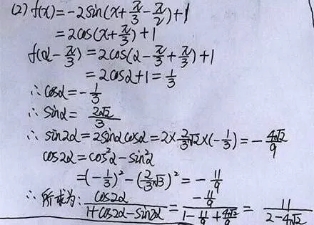 (2) f(x)=-2sin(x+π/3-π/2)+1
=2cos(x+π/3)+1
f(α-π/3)=2cos(α-π/3+π/3)+1
=2cosα+1=1/3
∴cosα=-1/3
∴sinα=2√2/3
∴sin2α=2sinαcosα=2×2/3√2×(-1/3)=-4√2/9
cos2α=cos²α-sin²α
=(-1/3)²-(2/3√3)²=-11/9
∴所求为:cos2α/1+cos2α-sin2α=-11/9/1-11/9+4√2/9=11/2-4√2